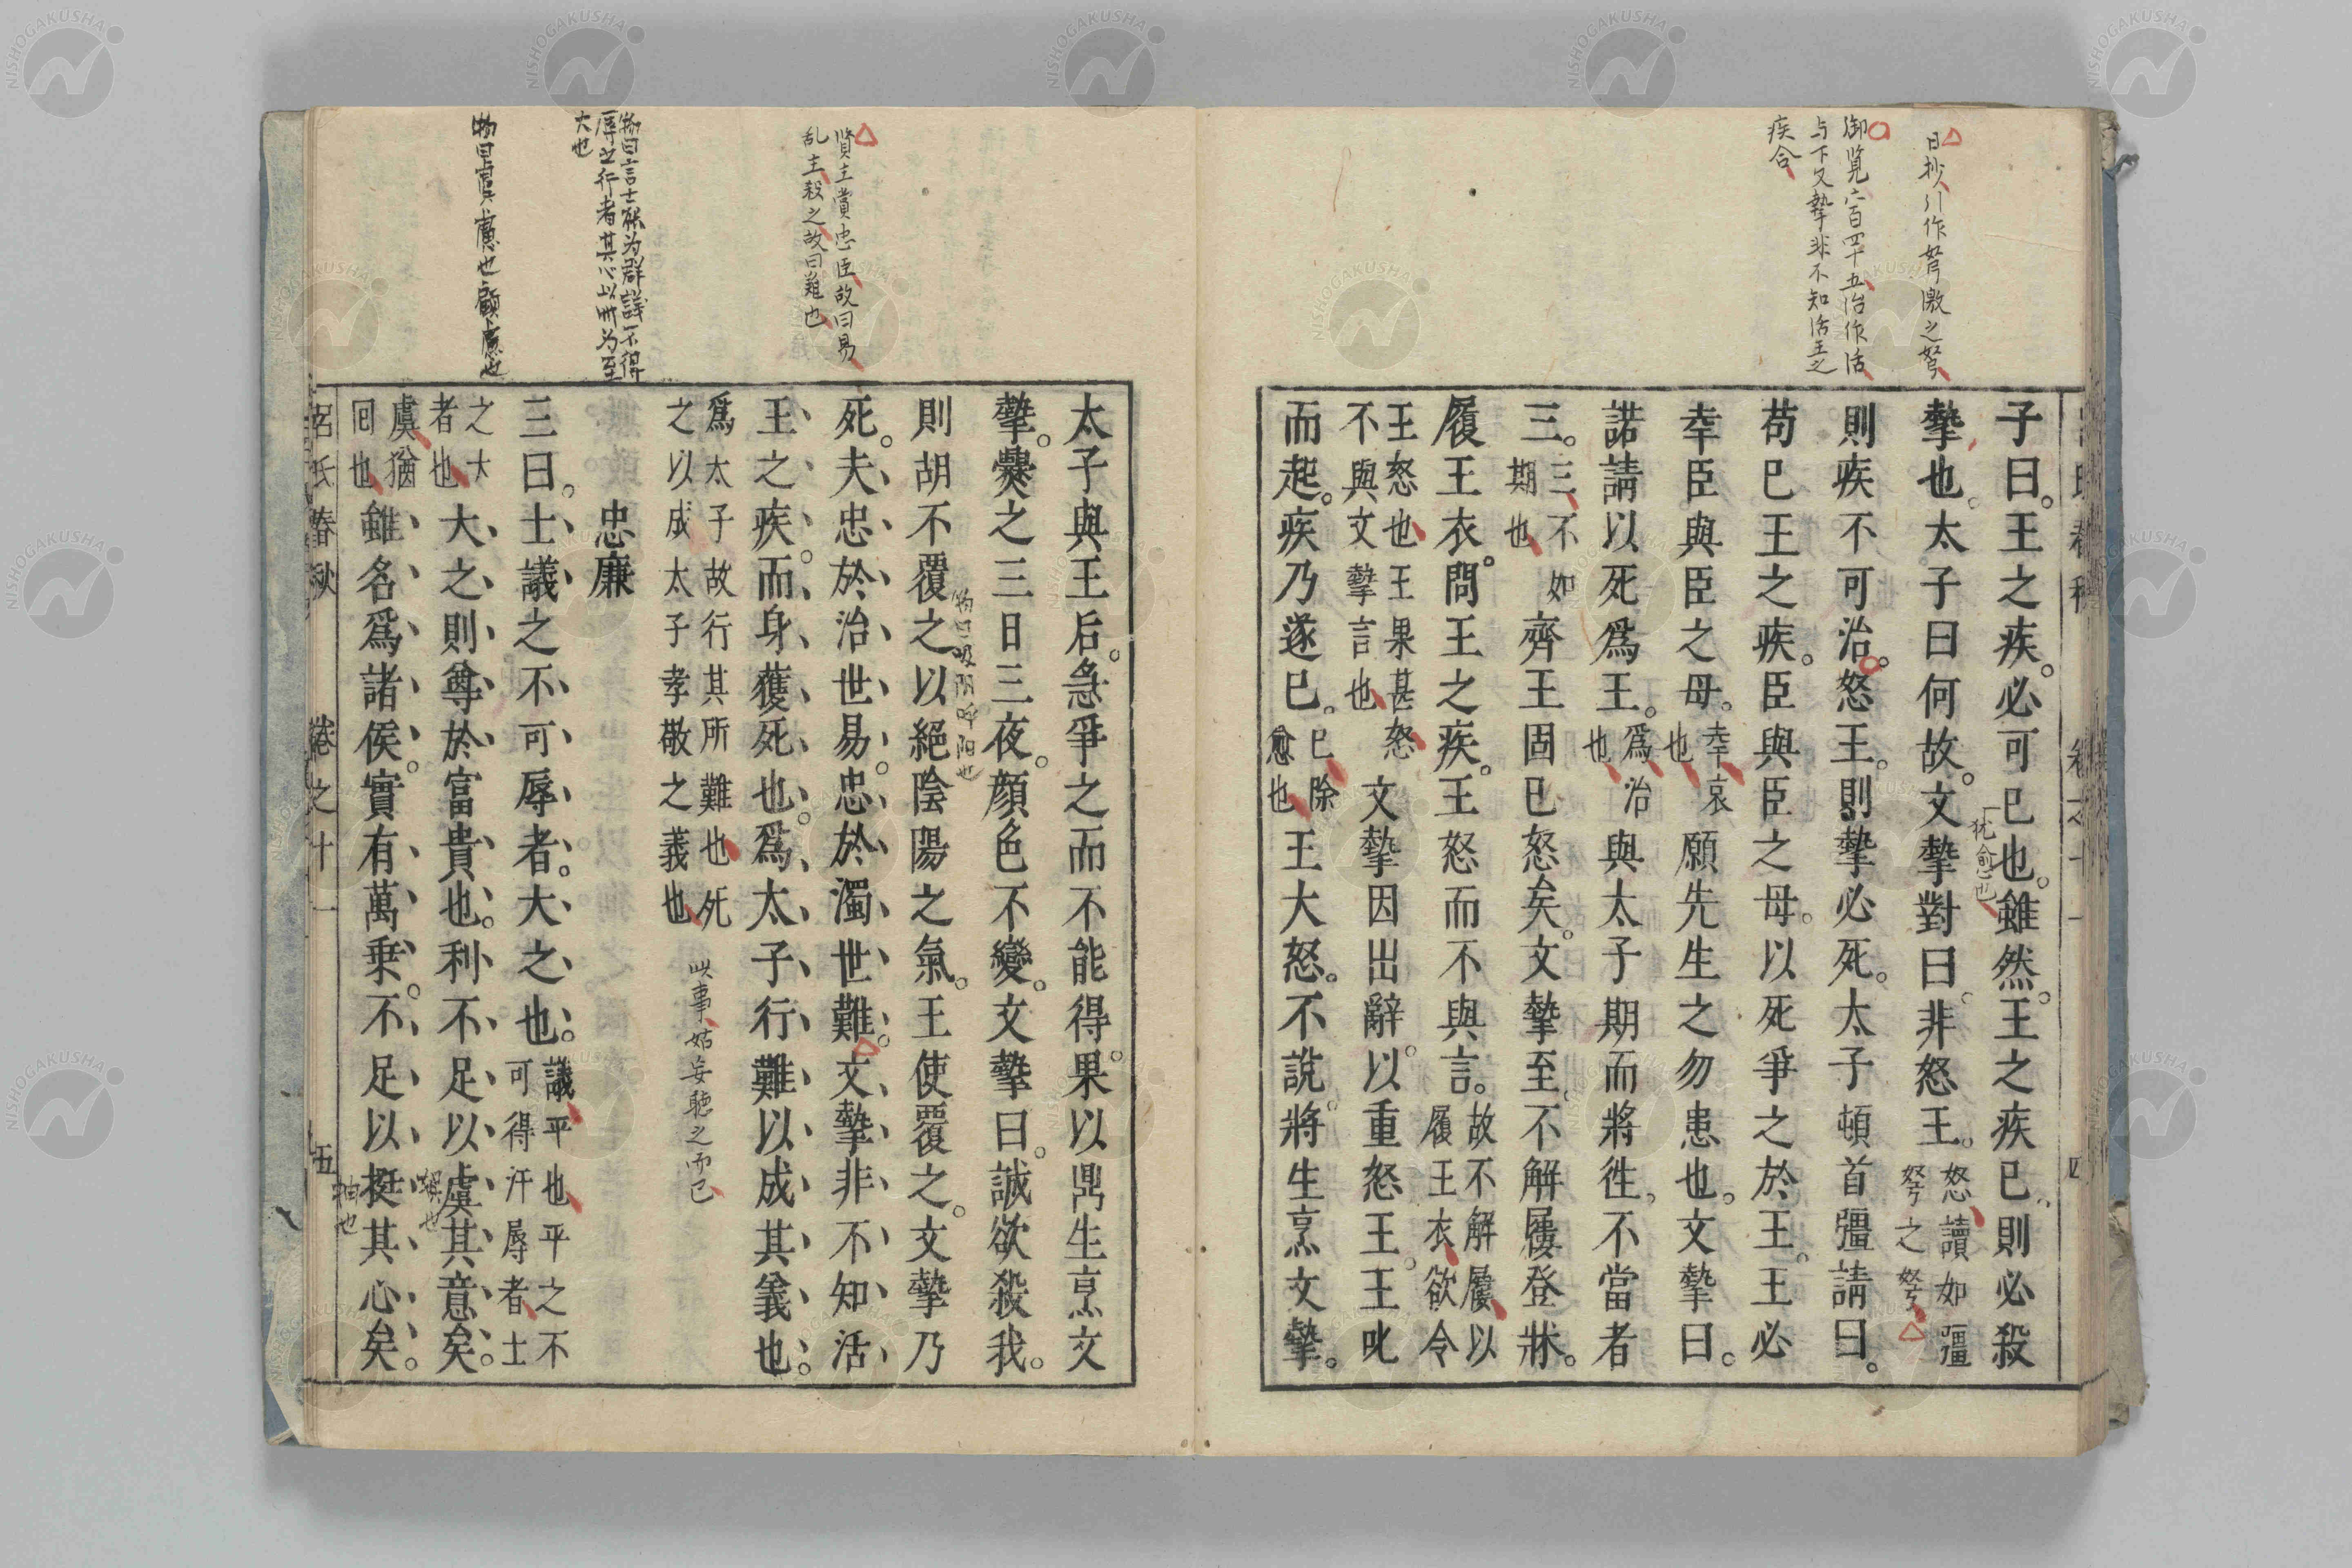 NISHOGAKUSHA
日抄引作弩激之弩
御覧六百四十五治作活
与下文摯非不知活王之
疾合
呂氏春秋 卷之十一 四
子曰。王之疾。必可已也。雖然。王之疾已。則必殺
猶愈也
摯也。太子曰何故。文摯對曰。非怒王。
怒讀如彊
弩之弩
則疾不可治。怒王。則摯必死。太子頓首彊請曰。
苟已王之疾。臣與臣之母。以死爭之於王。王必
幸臣與臣之母。
幸哀
也
願先生之勿患也。文摯曰。
諾請以死爲王。
爲治
也
與太子期而將徃。不當者
三。
三不如
期也
齊王固已怒矣。文摯至。不解屨登牀。
履王衣。問王之疾。王怒而不與言。
故不解屨以
履王衣欲令
王怒也王果甚怒
不與文摯言也
文摯因出辭。以重怒王。王叱
而起。疾乃遂已。
已除
愈也
王大怒。不說。將生烹文摯。
賢主賞忠臣故曰易
乱主殺之故曰難也
物曰言士能为群議不得
辱之行者其心以此为至
大也
物曰虞慮也顧慮也
太子與王后。急爭之而不能得。果以鼎生烹文
摯。爨之三日三夜。顔色不變。文摯曰。誠欲殺我。
物曰吸陰呼陽也
則胡不覆之以絕陰陽之氣。王使覆之。文摯乃
死。夫忠於治世易。忠於濁世難。文摯非不知活
王之疾。而身獲死也。爲太子行難以成其義也。
爲太子故行其所難也死
之以成太子孝敬之義也
此事姑妄聴之而已
忠廉
三曰。士議之不可辱者。大之也。
議平也平之不
可得汗辱者士
之大
者也
大之則尊於富貴也。利不足以虞其意矣。
娯也
虞猶
回也
雖名爲諸侯。實有萬乘。不足以挺其心矣。
抽也
呂氏春秋 卷之十一 五